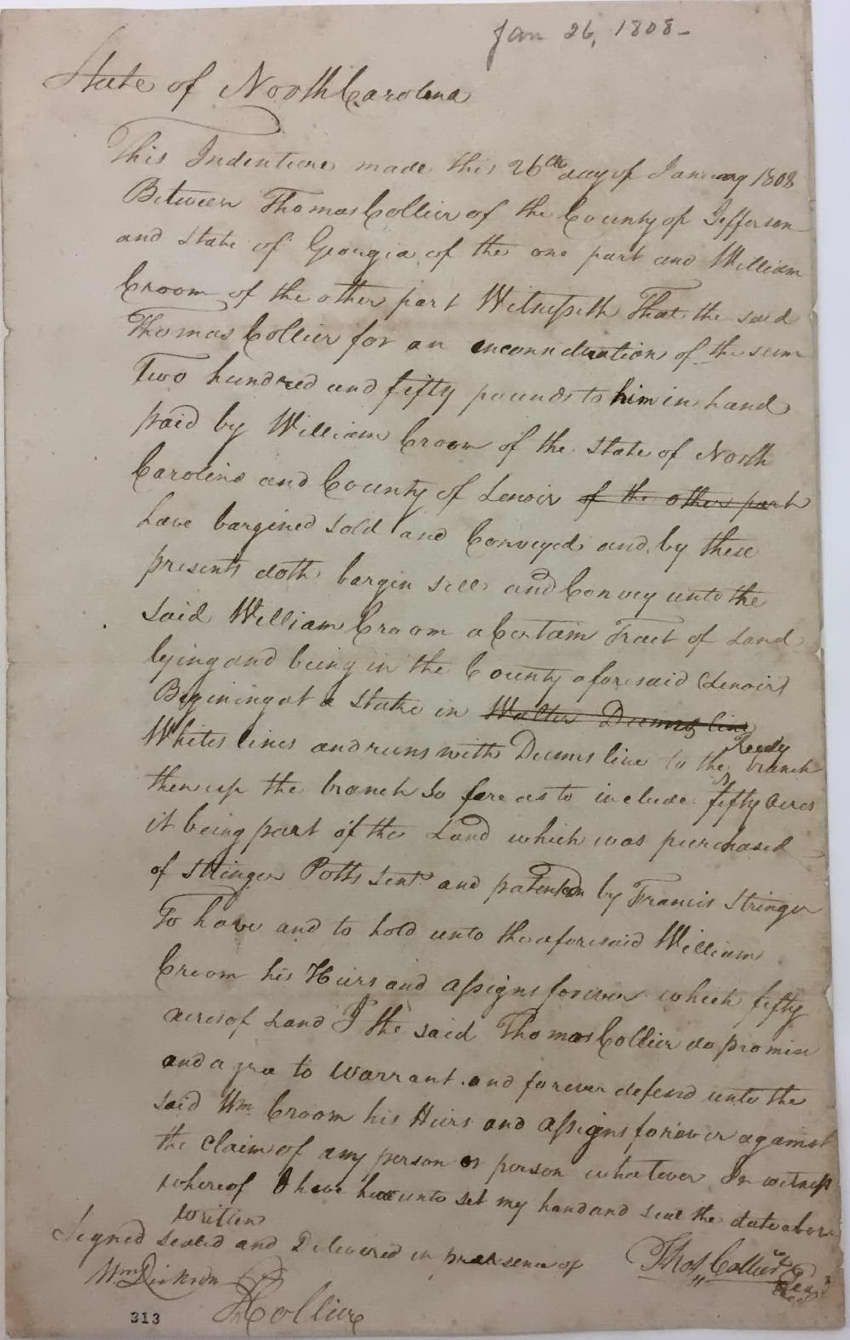 Jan 26, 1808-
State of North Carolina
This Indenture made this 26th day of January 1808
Between Thomas Collier of the County of Jefferson
and State of Georgia of the one part and William
Croom of the other part Witnesseth That the said
Thomas Collier for an in of the sum
Two hundred and fifty pounds to him in hand
paid by William Croom of the State of North
Carolina and County of Lenoir of the other part
have bargined sold and Conveyed and by these
presents doth bargin sell and Convey unto the
said William Croom a Certain Tract of Land
lying and being in the County aforesaid (Lenoir)
Begining at a Stake in Walter line
Whites lines and runs with line to the Reedy branch
then up the branch so fare as to include fifty acres
it being part of the Land which was purchased
of Stringer Potts and by Francis Stringer
To have and to hold unto the aforesaid William
Croom his Heirs and assigns forever which fifty
acres of Land I the said Thomas Collier do promis
and agree to Warrant and forever defend unto the
said Wm Croom his Heirs and assigns forever against
the Claim of any person or person whatever In witness
whereof I have hereunto set my hand and seal the date above
written
Signed sealed and Delivered in presence of
Thos Collier Seal
Wm
Collier
313